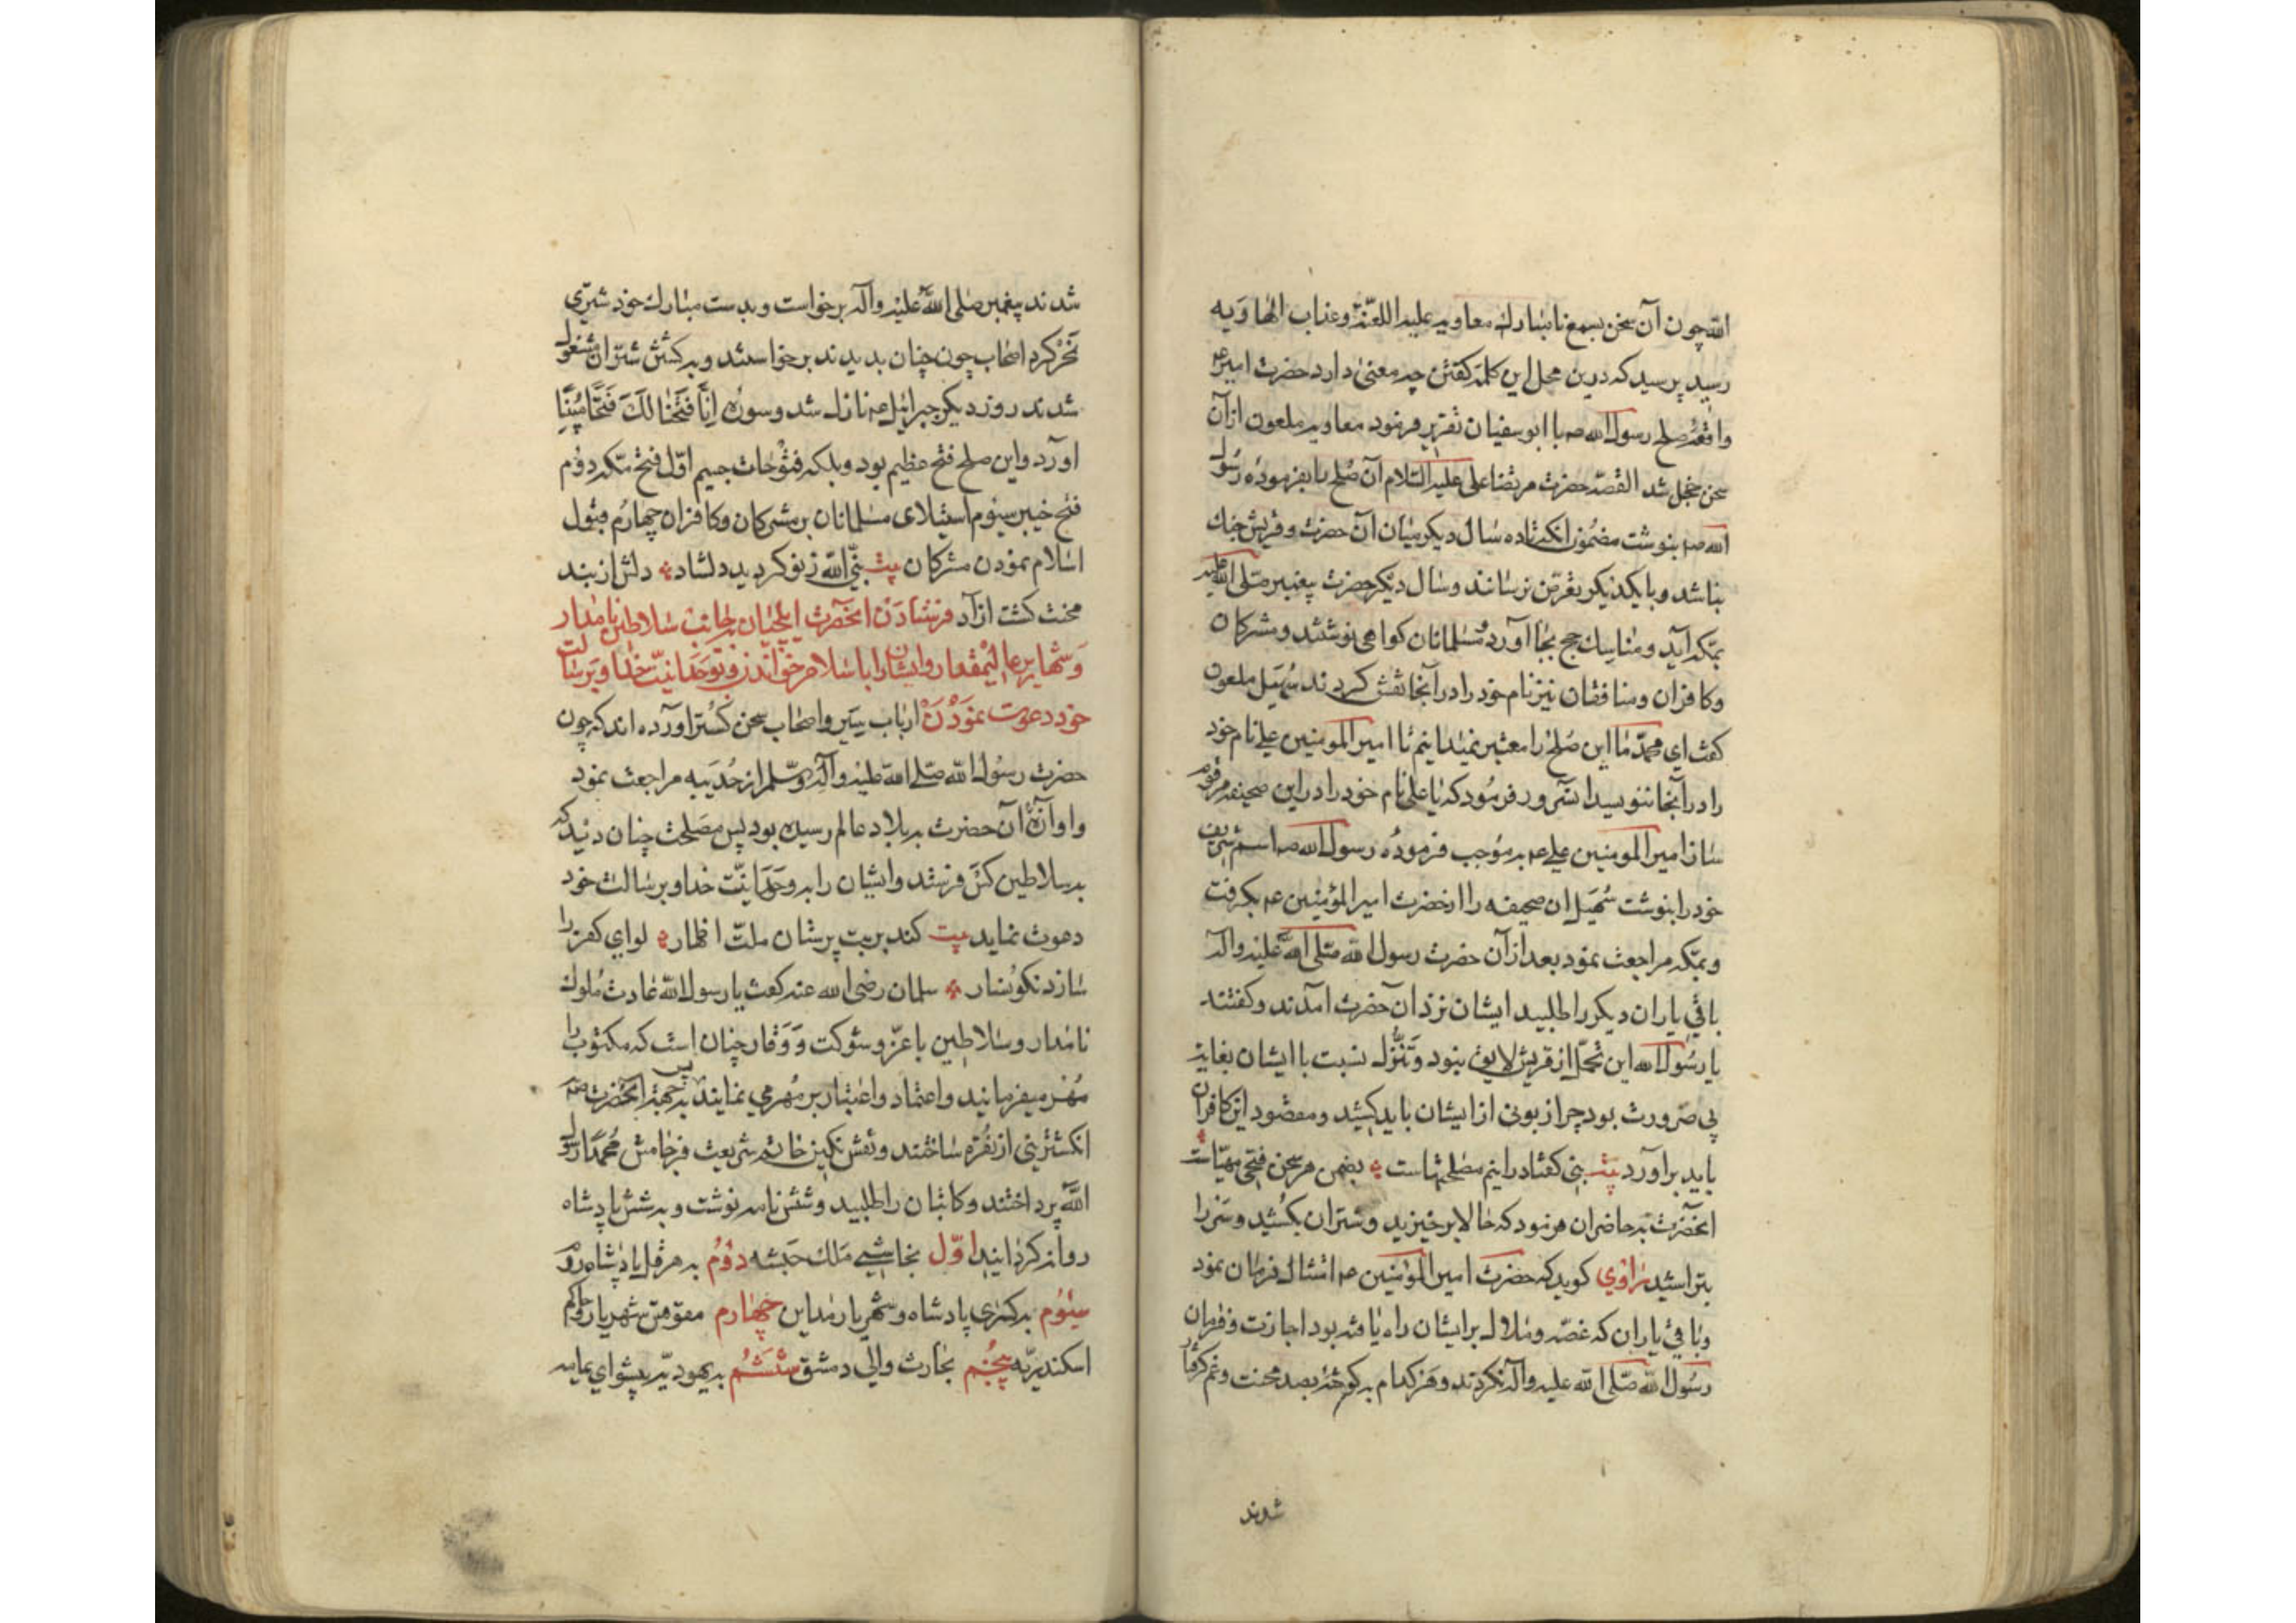 الله چون آن سخن بسمع نامبارك معاويه عليه اللعنة وعذاب الهاويه
رسيد پرسيد كه درين محل اين كلمه كفتن چه معنى دارد حضرت امير عم
واقعهٔ صلح رسول الله صم با ابوسفيان تقرير فرمود معاويه ملعون از آن
سخن خجل شد القصه حضرت مرتضا على عليه السلام آن صلح بايفرمودهٔ رسول
الله صم بنوشت مضمون انكه تا ده سال ديكر ميان آن حضرت وقريش جنك
نباشد وبا يكديكر تعرض نرسانند وسال ديكر حضرت پيغمبر صلى الله عليه
بمكه آيد ومناسك حج بجا آورد مسلمانان كواهى نوشتند ومشركان
وكافران ومنافقان نيز نام خود را در آنجا نقش كردند سهيل ملعون
كفت اي محمد ما اين صلح را معتبر نميدانيم تا امير المومنين على نام خود
را در آنجا ننويسد آنسرور فرمود كه يا على نام خود را در اين صحيفه مرقوم
ساز امير المومنين على عم بموجب فرمودهٔ رسول الله صم اسم شريف
خود را بنوشت سهيل ان صحيفه را از حضرت امير المؤمنين عم بكرفت
وبمكه مراجعت نمود بعد از آن حضرت رسول الله صلى الله عليه واله
باقي ياران ديكر را طلبيد ايشان نزد آن حضرت آمدند وكفتند
يا رسول الله اين تحمل از قريش لايق نبود وتنزل نسبت با ايشان بغايت
بي ضرورت بود چرا زبونى از ايشان بايد كشيد ومقصود اين كافران
بايد بر آورد بيت نبى كفتا در اينم مصلحتهاست بضمن هر سخن فتحى مهياست
انحضرت بحاضران فرمود كه حالا برخيزيد وشتران بكشيد وسر را
بتراشيد راوي كويد كه حضرت امير المؤمنين عم امتثال فرمان نمود
وباقي ياران كه غصه وملال بر ايشان راه يافته بود اجازت وفرمان
رسول الله صلى الله عليه واله نكردند وهر كدام بكوشهٔ بصد محنت وغم كرفتار
شدند
شدند پيغمبر صلى الله عليه وآله برخواست وبدست مبارك خود شتري
نحر كرد اصحاب چون چنان بديدند برخواستند وبه كشتن شتران مشغول
شدند روز ديكر جبرائيل عم نازل شد وسوره إنا فتحنا لك فتحا مبينا
آورد واين صلح فتح عظيم بود وبلكه فتوحات جسيم اول فتح مكه دوم
فتح خيبر سيوم استيلاى مسلمانان بر مشركان وكافران چهارم قبول
اسلام نمودن مشركان بيت نبى الله زنو كرديد دلشاد دلش از بند
محنت كشت آزاد فرستادن انحضرت ايلچيان بجانب سلاطين نامدار
وشهاير عاليمقدار وايشان را باسلام خواندن وبوحدانيت خدا وبرسالت
خود دعوت نمودن ارباب سير واصحاب سخن كستر آورده اند كه چون
حضرت رسول الله صلى الله عليه وآله وسلم از حديبيه مراجعت نمود
و آوازهٔ آن حضرت به بلاد عالم رسيده بود پس مصلحت چنان ديد كه
به سلاطين كس فرستد وايشان را به وحدانيت خدا وبرسالت خود
دعوت نمايد بيت كند بر بت پرستان ملت اظهار لواي كفر را
سازد نكونسار سلمان رضى الله عنه كفت يا رسول الله عادت ملوك
نامدار وسلاطين با عز وشوكت ووقار چنان است كه مكتوب را
مهر ميفرمايند واعتماد واعتبار بر مهر مي نمايند پس بجهة آنحضرت صم
انكشتريني از نقره ساختند ونقش نكين خاتم شريعت فرجامش محمدا رسول
الله پرداختند وكاتبان را طلبيد وشش نامه نوشت وبه شش پادشاه
روانه كردانيد اول بنجاشي ملك حبشه دوم به هرقل پادشاه روم
سيوم به كسرى پادشاه وشهريار مداين چهارم مقوقس شهريار وحاكم
اسكندريه پنجم بحارث والي دمشق ششم به يهوديه پيشواي يمامه